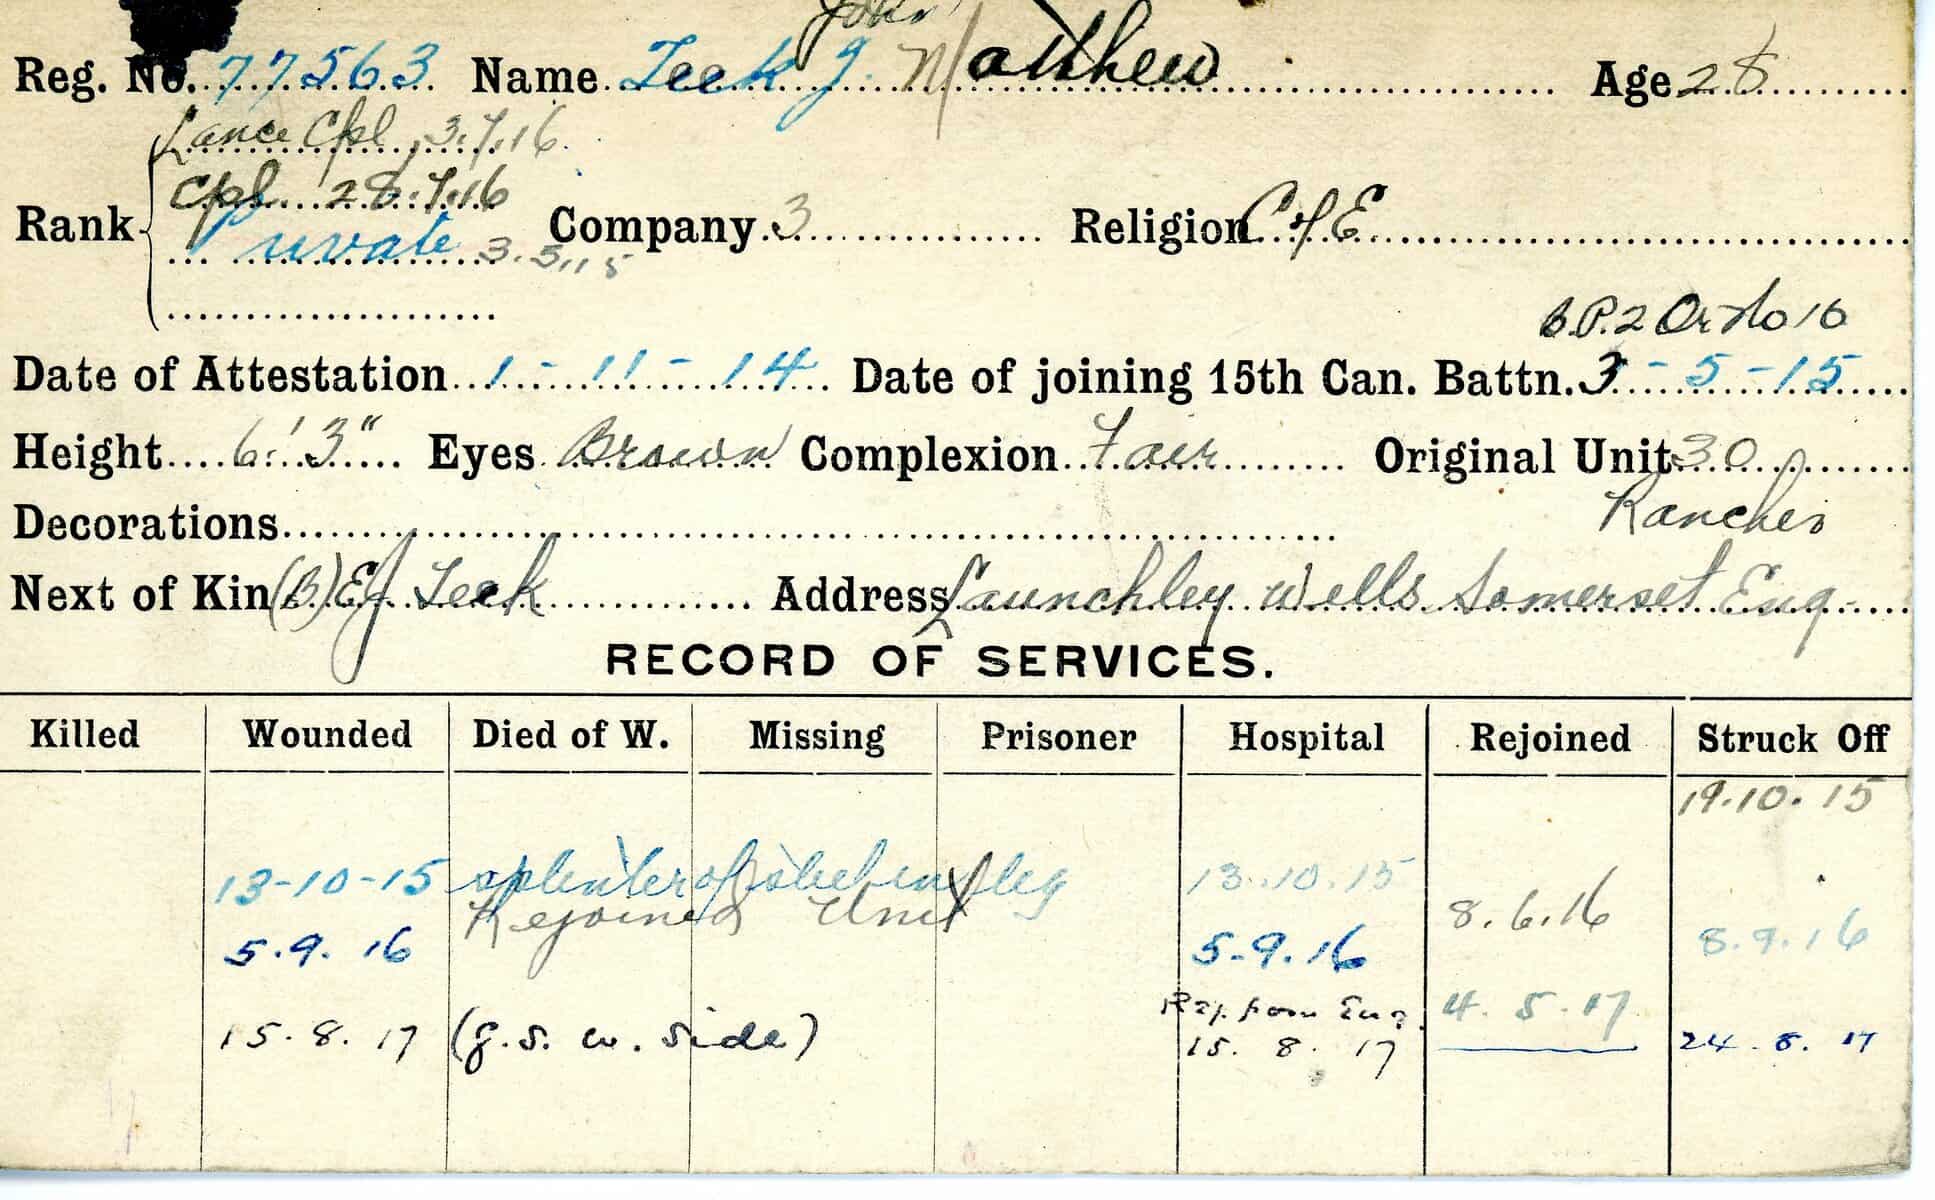 John
Reg. No. 77563 Name Teek J. Matthew Age 28
Lance Cpl 3.7.16
Cpl 28.7.16
Rank Private 3.5.15 Company 3 Religion C of E
B.P. 2 Or No 16
Date of Attestation 1-11-14 Date of joining 15th Can. Battn. 3-5-15
Height 6' 3" Eyes Brown Complexion Fair Original Unit 30
Decorations Rancher
Next of Kin (B) E J Teek Address Launchley Wells Somerset Eng
RECORD OF SERVICES.
Killed Wounded Died of W. Missing Prisoner Hospital Rejoined Struck Off
19.10.15
13-10-15 splinter of shel in leg 13.10.15
Rejoined Unit 8.6.16
5.9.16 5-9.16 8.9.16
Rej. from Eng. 4.5.17
15.8.17 (g.s.w. side) 15.8.17 24.8.17